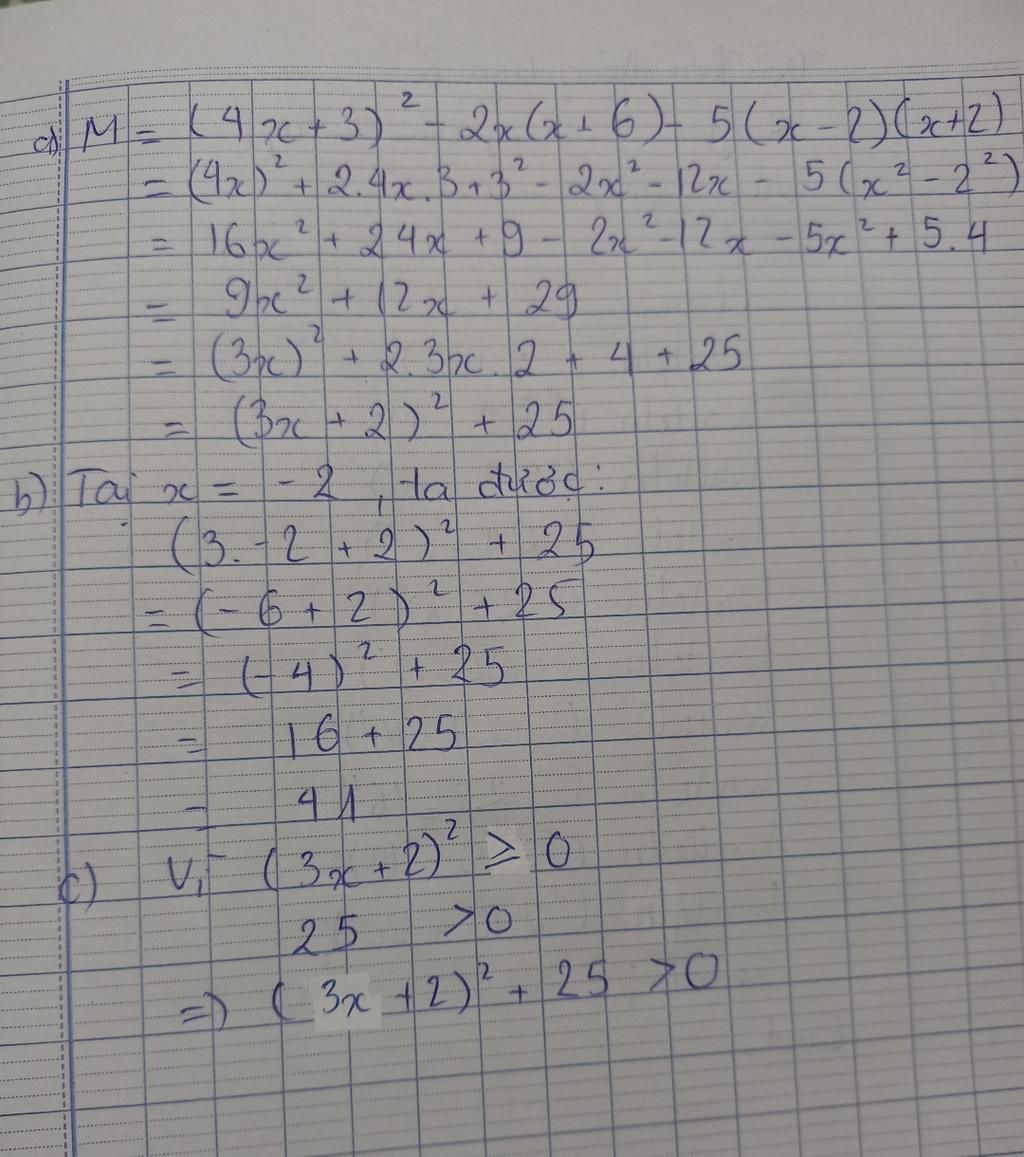 a) M = (4x + 3)² - 2x(x + 6) - 5(x - 2)(x+2)
= (4x)² + 2.4x.3 + 3² - 2x² - 12x - 5(x² - 2²)
= 16x² + 24x + 9 - 2x² - 12x - 5x² + 5.4
= 9x² + 12x + 29
= (3x)² + 2.3x.2 + 4 + 25
= (3x + 2)² + 25
b) Tại x = -2, ta được:
(3.-2 + 2)² + 25
= (-6 + 2)² + 25
= (-4)² + 25
= 16 + 25
= 41
c) Vì (3x + 2)² ≥ 0
25 > 0
=> (3x + 2)² + 25 > 0